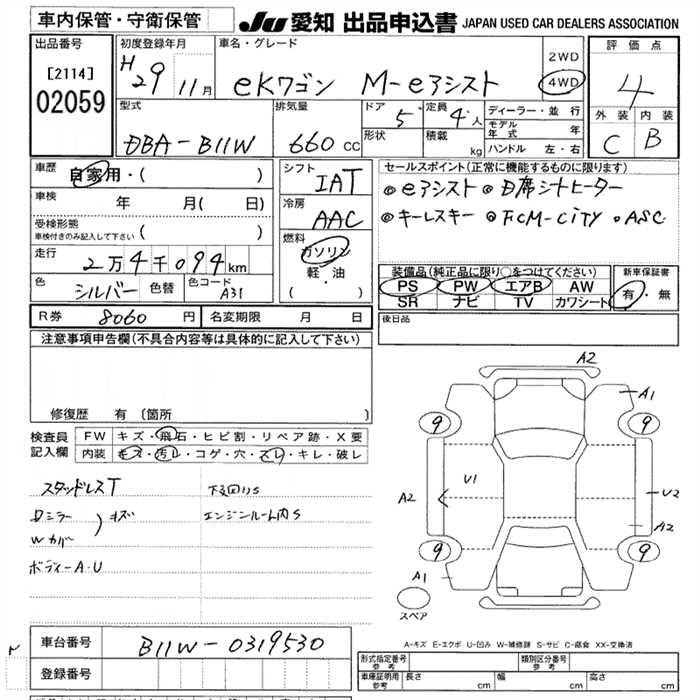 車内保管・守衛保管 JU 愛知 出品申込書 JAPAN USED CAR DEALERS ASSOCIATION
出品番号 [2114] 02059
初度登録年月 H29 11月
車名・グレード eKワゴン M-eアシスト
2WD
4WD
評価点 4
外装 内装
C B
型式 DBA-B11W
排気量 660cc
ドア 5
形状
定員 4人
積載 kg
ディーラー・並行
モデル年式 年
ハンドル 左・右
車歴 自家用・( )
車検 年 月( 日)
受検形態
車検付きのみ記入して下さい ( )
走行 2万4千094km
色 シルバー 色替 色コード A31
シフト IAT
冷房 AAC
燃料 ガソリン
軽・油
( )
セールスポイント(正常に機能するものに限ります)
◎eアシスト ◎D席シートヒーター
◎キーレスキー ◎FCM-CITY ◎ASC
装備品(純正品に限り○をつけてください)
PS PW エアB AW
SR ナビ TV カワシート
新車保証書
有・無
R券 8060円 名変期限 月 日
後日品
注意事項申告欄(不具合内容等は具体的に記入して下さい)
修復歴 有 〔箇所 〕
検査員記入欄
FW キズ・飛石・ヒビ割・リペア跡・X要
内装 キズ・汚レ・コゲ・穴・スレ・キレ・破レ
スタッドレスT 下廻りS
Dミラー キズ エンジンルーム内S
Wカバー
ボディーA・U
A2
A1
9 9
U1
A2 U2
A2
9 9
A1
スペア
A-キズ E-エクボ U-凹み W-補修跡 S-サビ C-腐食 XX-交換済
車台番号 B11W-0319530
登録番号
形式指定番号 参考
類別区分番号 参考
車庫証明用 参考 長さ cm 幅 cm 高さ cm